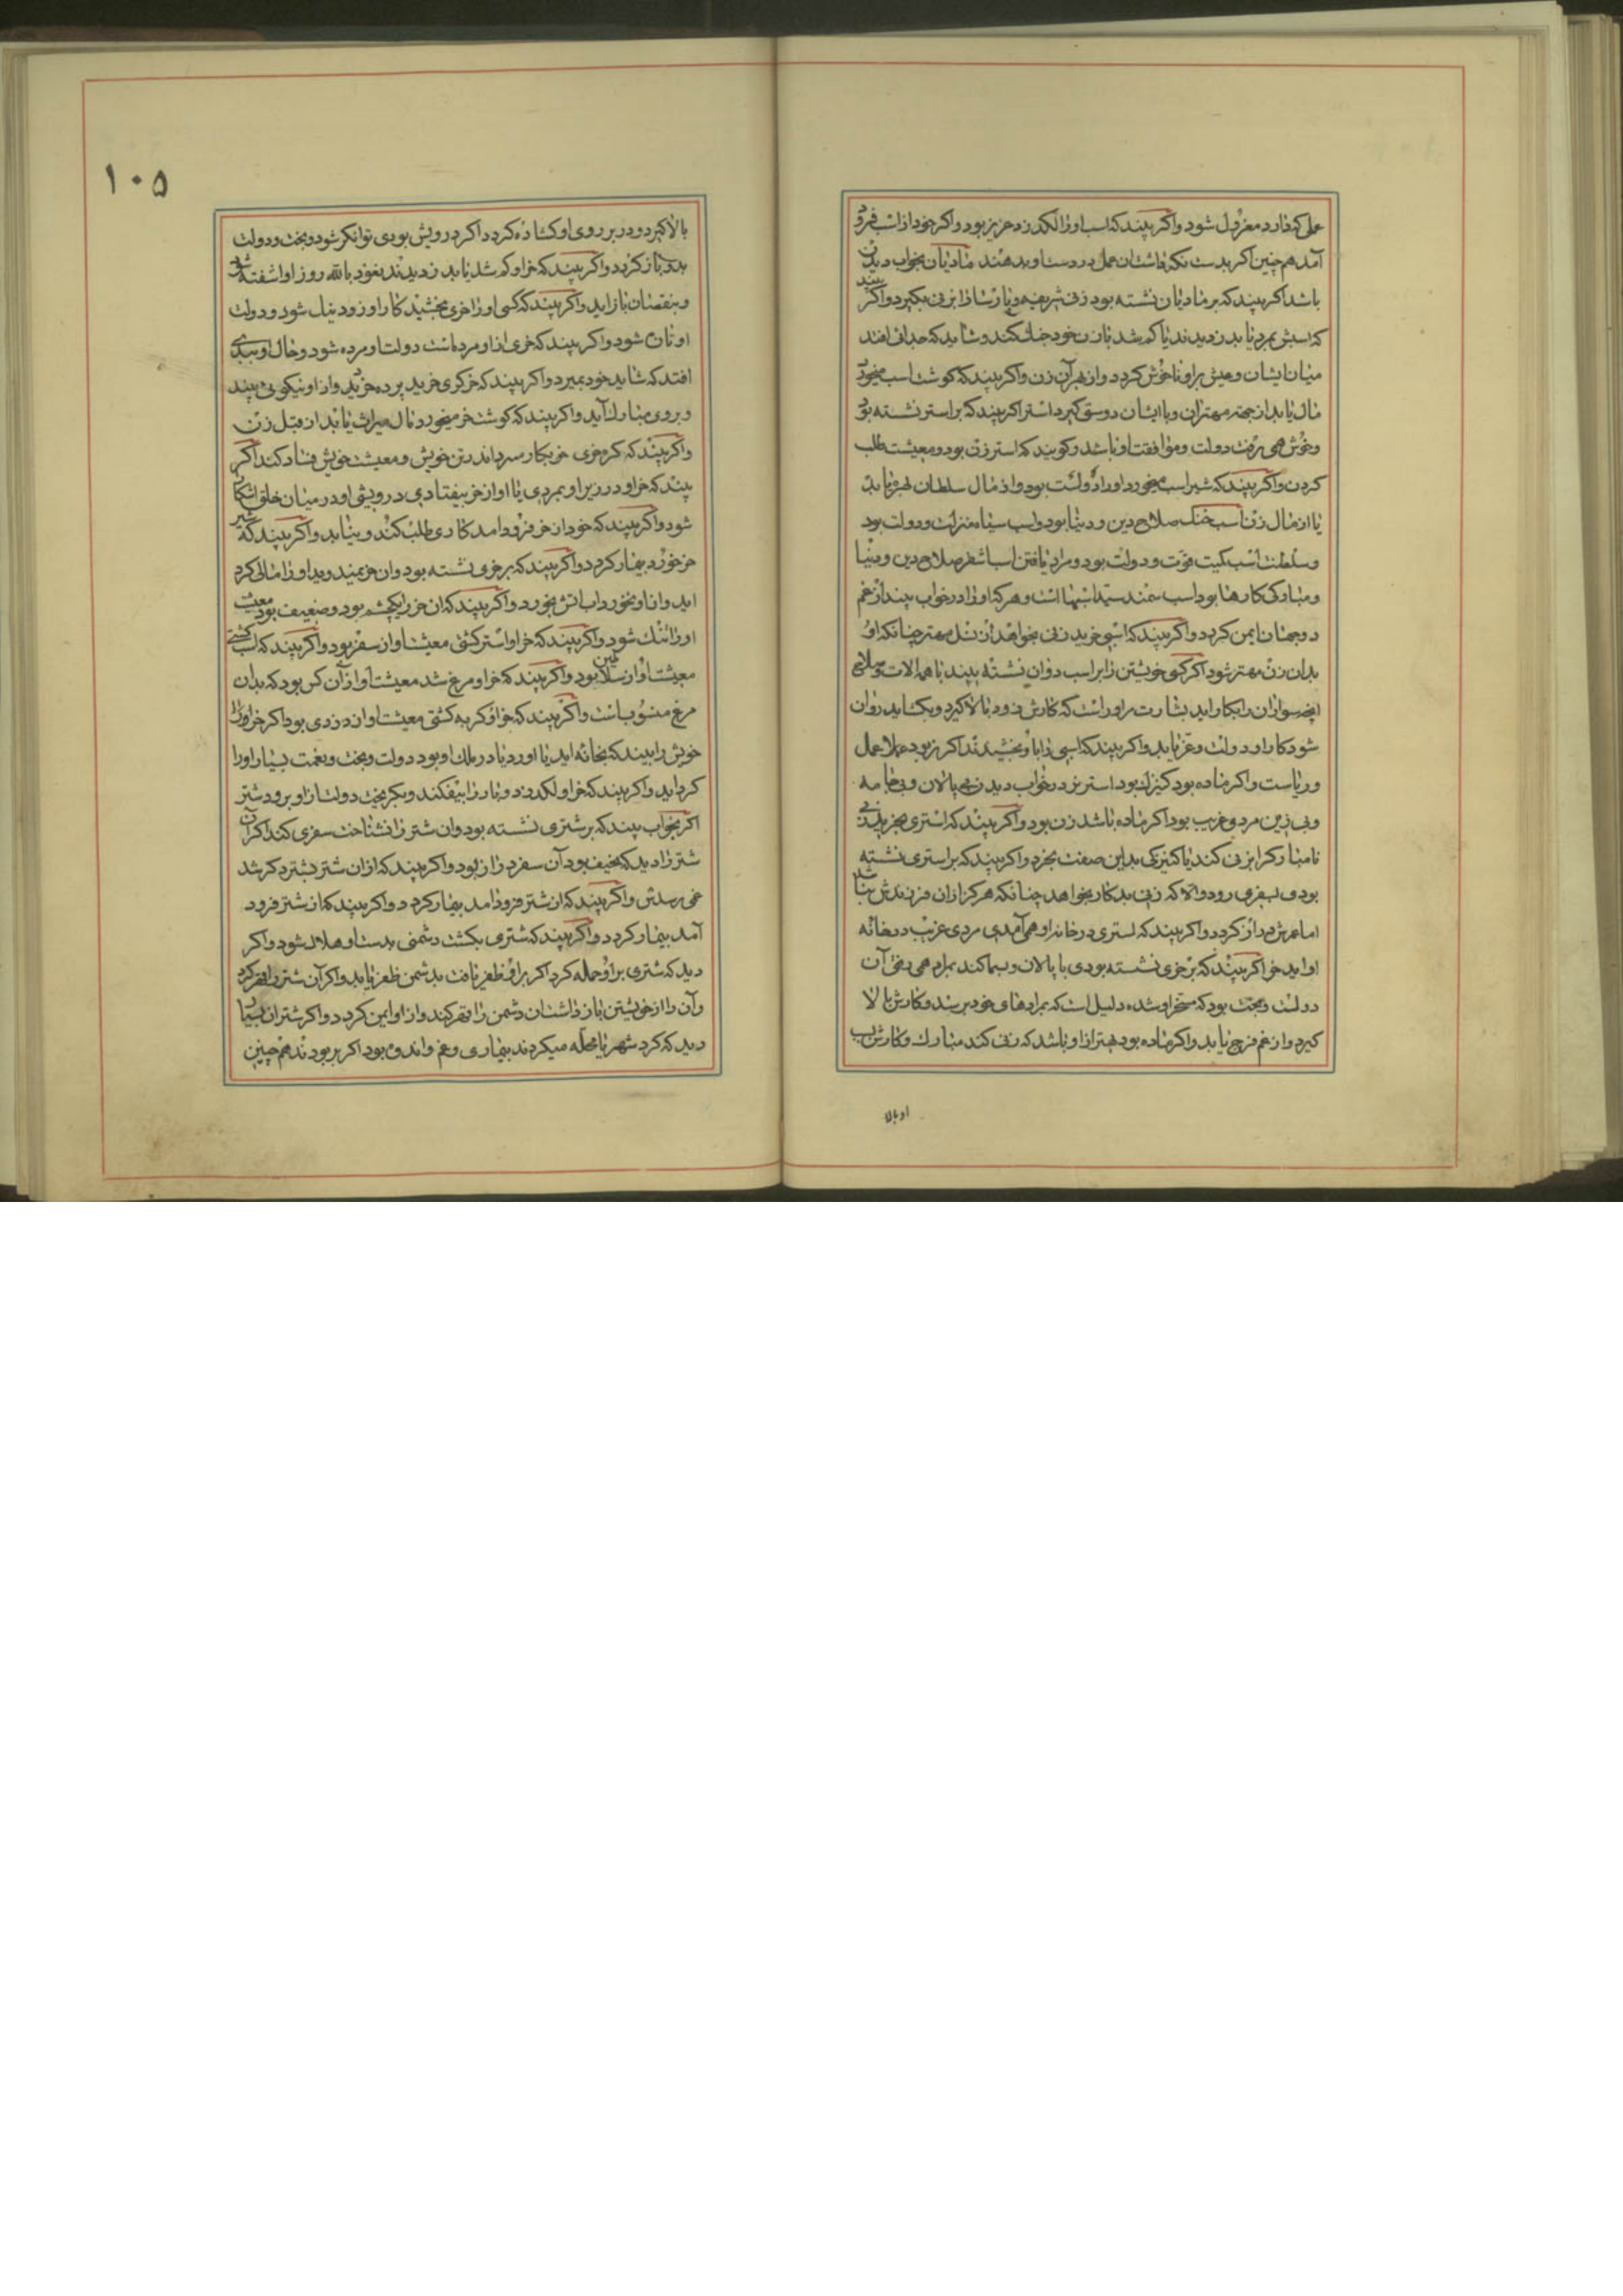 عمل که دارد معزول شود واکر بیند که اسب اورا لکد زد و اکر خود از اسب فرو
آمد هم چنین اکر بدست عمل در دست او بدهند مادیان بخواب دیدن
باشد اکر بیند که بر مادیان نشسته بود زنی شریفه و یا زنی بکیرد واکر بیند
که اسبش بمرد یا بدزدیدند یا کم شد با زن خود جنک کند و شاید که جدائی افتد
میان ایشان و عیش براو ناخوش کردد و از بهر آن زن واکر بیند که کوشت اسب میخورد
مال یابد از جهة مهتران و با ایشان دوستی کیرد استر اکر بیند که براستر نشسته بود
وخوش همی رفت دولت وموافقت او باشد و کویند که استر زن بود و معیشت طلب
کردن واکر بیند که شیر اسب میخورد اورا دولت بود و از مال سلطان بهره یابد
یا از مال زن اسب خنک صلاح دین و دنیا بود و اسب سیاه منزلت و دولت بود
وسلطنت اسب کمیت قوت و دولت بود و مراد یافتن اسب اشقر صلاح دین و دنیا
ومبارکی کارها بود اسب سمند سید اسبها است و هر که اورا در خواب بیند از غم
دوجهان ایمن کردد واکر بیند که اسبی خرید زنی بخواهد از نسل مهتر چنانکه او
بدان زن مهتر شود اکر کسی خویشتن را بر اسب دوان نشسته بیند با همه الات وسلاحی
که سواران را بکار اید بشارت مر اورا است که کارش زود بالا کیرد و بکشاید روان
شود کار او و دولت و عز یابد واکر بیند که اسبی را باو بخشیدند اکر نر بود عمل
وریاست واکر ماده بود کنیزک بود استر نر در خواب دیدن بی پالان و بی جامه
وبی زین مردی غریب بود اکر ماده باشد زن بود واکر بیند که استری بخرید زنی
نامبارک را بزنی کند یا کنیزکی بدین صفت بخرد واکر بیند که براستری نشسته
بودی بسفری رود والا که زنی بدکار بخواهد چنانکه هرکز از آن فرزندش نباشد
اما عمرش دراز کردد واکر بیند که استری در خانه او همی آمدی مردی غریب در خانه
او اید خر اکر بیند که بر خری نشسته بودی با پالان و بمراد همی رفتی آن
دولت و بخت بود که مسخر او شده دلیل است که بمرادهای خود برسد و کارش بالا
کیرد و از غم فرج یابد واکر ماده بود بهتر از او باشد که زنی کند مبارک و کارش
او بالا
۱۰۵
بالا کیرد و در بر روی او کشاده کردد اکر درویش بودی توانکر شود و بخت و دولت
بدو باز کردد واکر بیند که خر او کم شد یا بدزدیدند نعوذ بالله روز او اشفته شود
و بنقصان باز اید واکر بیند که کسی او را خری بخشید کار او زود نیک شود و دولت
او تازه شود واکر بیند که خری از او مرد است دولت او مرده شود و حال او ببدی
افتد که شاید خود بمیرد واکر بیند که خر کری خرید برده خرید و از او نیکوئی بیند
و بروی مبارک آید واکر بیند که کوشت خر میخورد مال میراث یابد از قبل زن
واکر بیند که خویش و معیشت خویش فساد کند اکر
بیند که خر او در زیر او بمردی یا او از خر بیفتادی درویشی او در میان خلق اشکار
شود واکر بیند که خود از خر فرود امد کاری طلب کند و بیابد واکر بیند که شیر
خر خورد بیمار کردد واکر بیند که بر خری نشسته بود
اید واکر بیند که ان خر را یکچشم بود و ضعیف بود معیشت
اورا تنک شود واکر بیند که خر او استر کشت معیشت او از سفر بود واکر بیند که اسب کشتی
معیشت او از سلاطین بود واکر بیند که خر او مرغ شد معیشت او از آن کس بود که بدان
مرغ منسوب است واکر بیند که خر او کربه کشتی معیشت او از دزدی بود اکر خر او را
خویش را بیند که بخانه اید یا اورد یا در ملک او بود دولت و بخت و نعمت بسیار او را
کرد اید واکر بیند که خر او لکد زد و بار را بیفکند و بکریخت دولت از او برود شتر
اکر بخواب بیند که بر شتری نشسته بود و ان شتر را نشناخت سفری کند اکر آن
شتر را دید که نحیف بود آن سفر دراز بود واکر بیند که از ان شتر بشتر دکر شد
غمی رسدش واکر بیند که از شتر فرود امد بیمار کردد واکر بیند که از شتر فرود
آمد بیمار کردد واکر بیند که شتری بکشت دشمنی بدست او هلاک شود واکر
دید که شتری بر او حمله کرد اکر بر او ظفر یافت بدشمن ظفر یابد واکر آن شتر را قهر کرد
وآن را از خویشتن باز داشت آن دشمن را قهر کند و از او ایمن کردد واکر شتران بسیار
دید که کرد شهر یا محله میکردند بیماری و غم و اندوه بود اکر پر بودند هم چنین